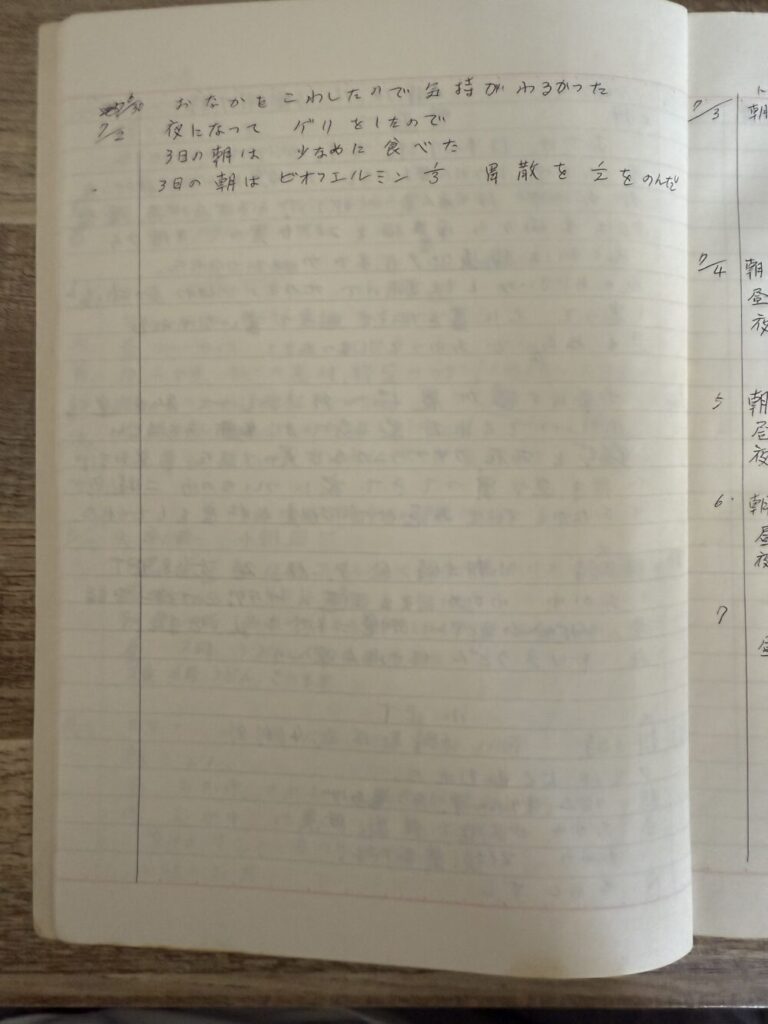 おなかをこわしたので 気持がわるかった
7/2 夜になって ゲリをしたので
3日の朝は 少なめに食べた
3日の朝は ビオフエルミン 1/3 胃散を 1/2をのんだ
7/3 朝
7/4 朝
昼
夜
5 朝
昼
夜
6 朝
昼
夜
7
昼